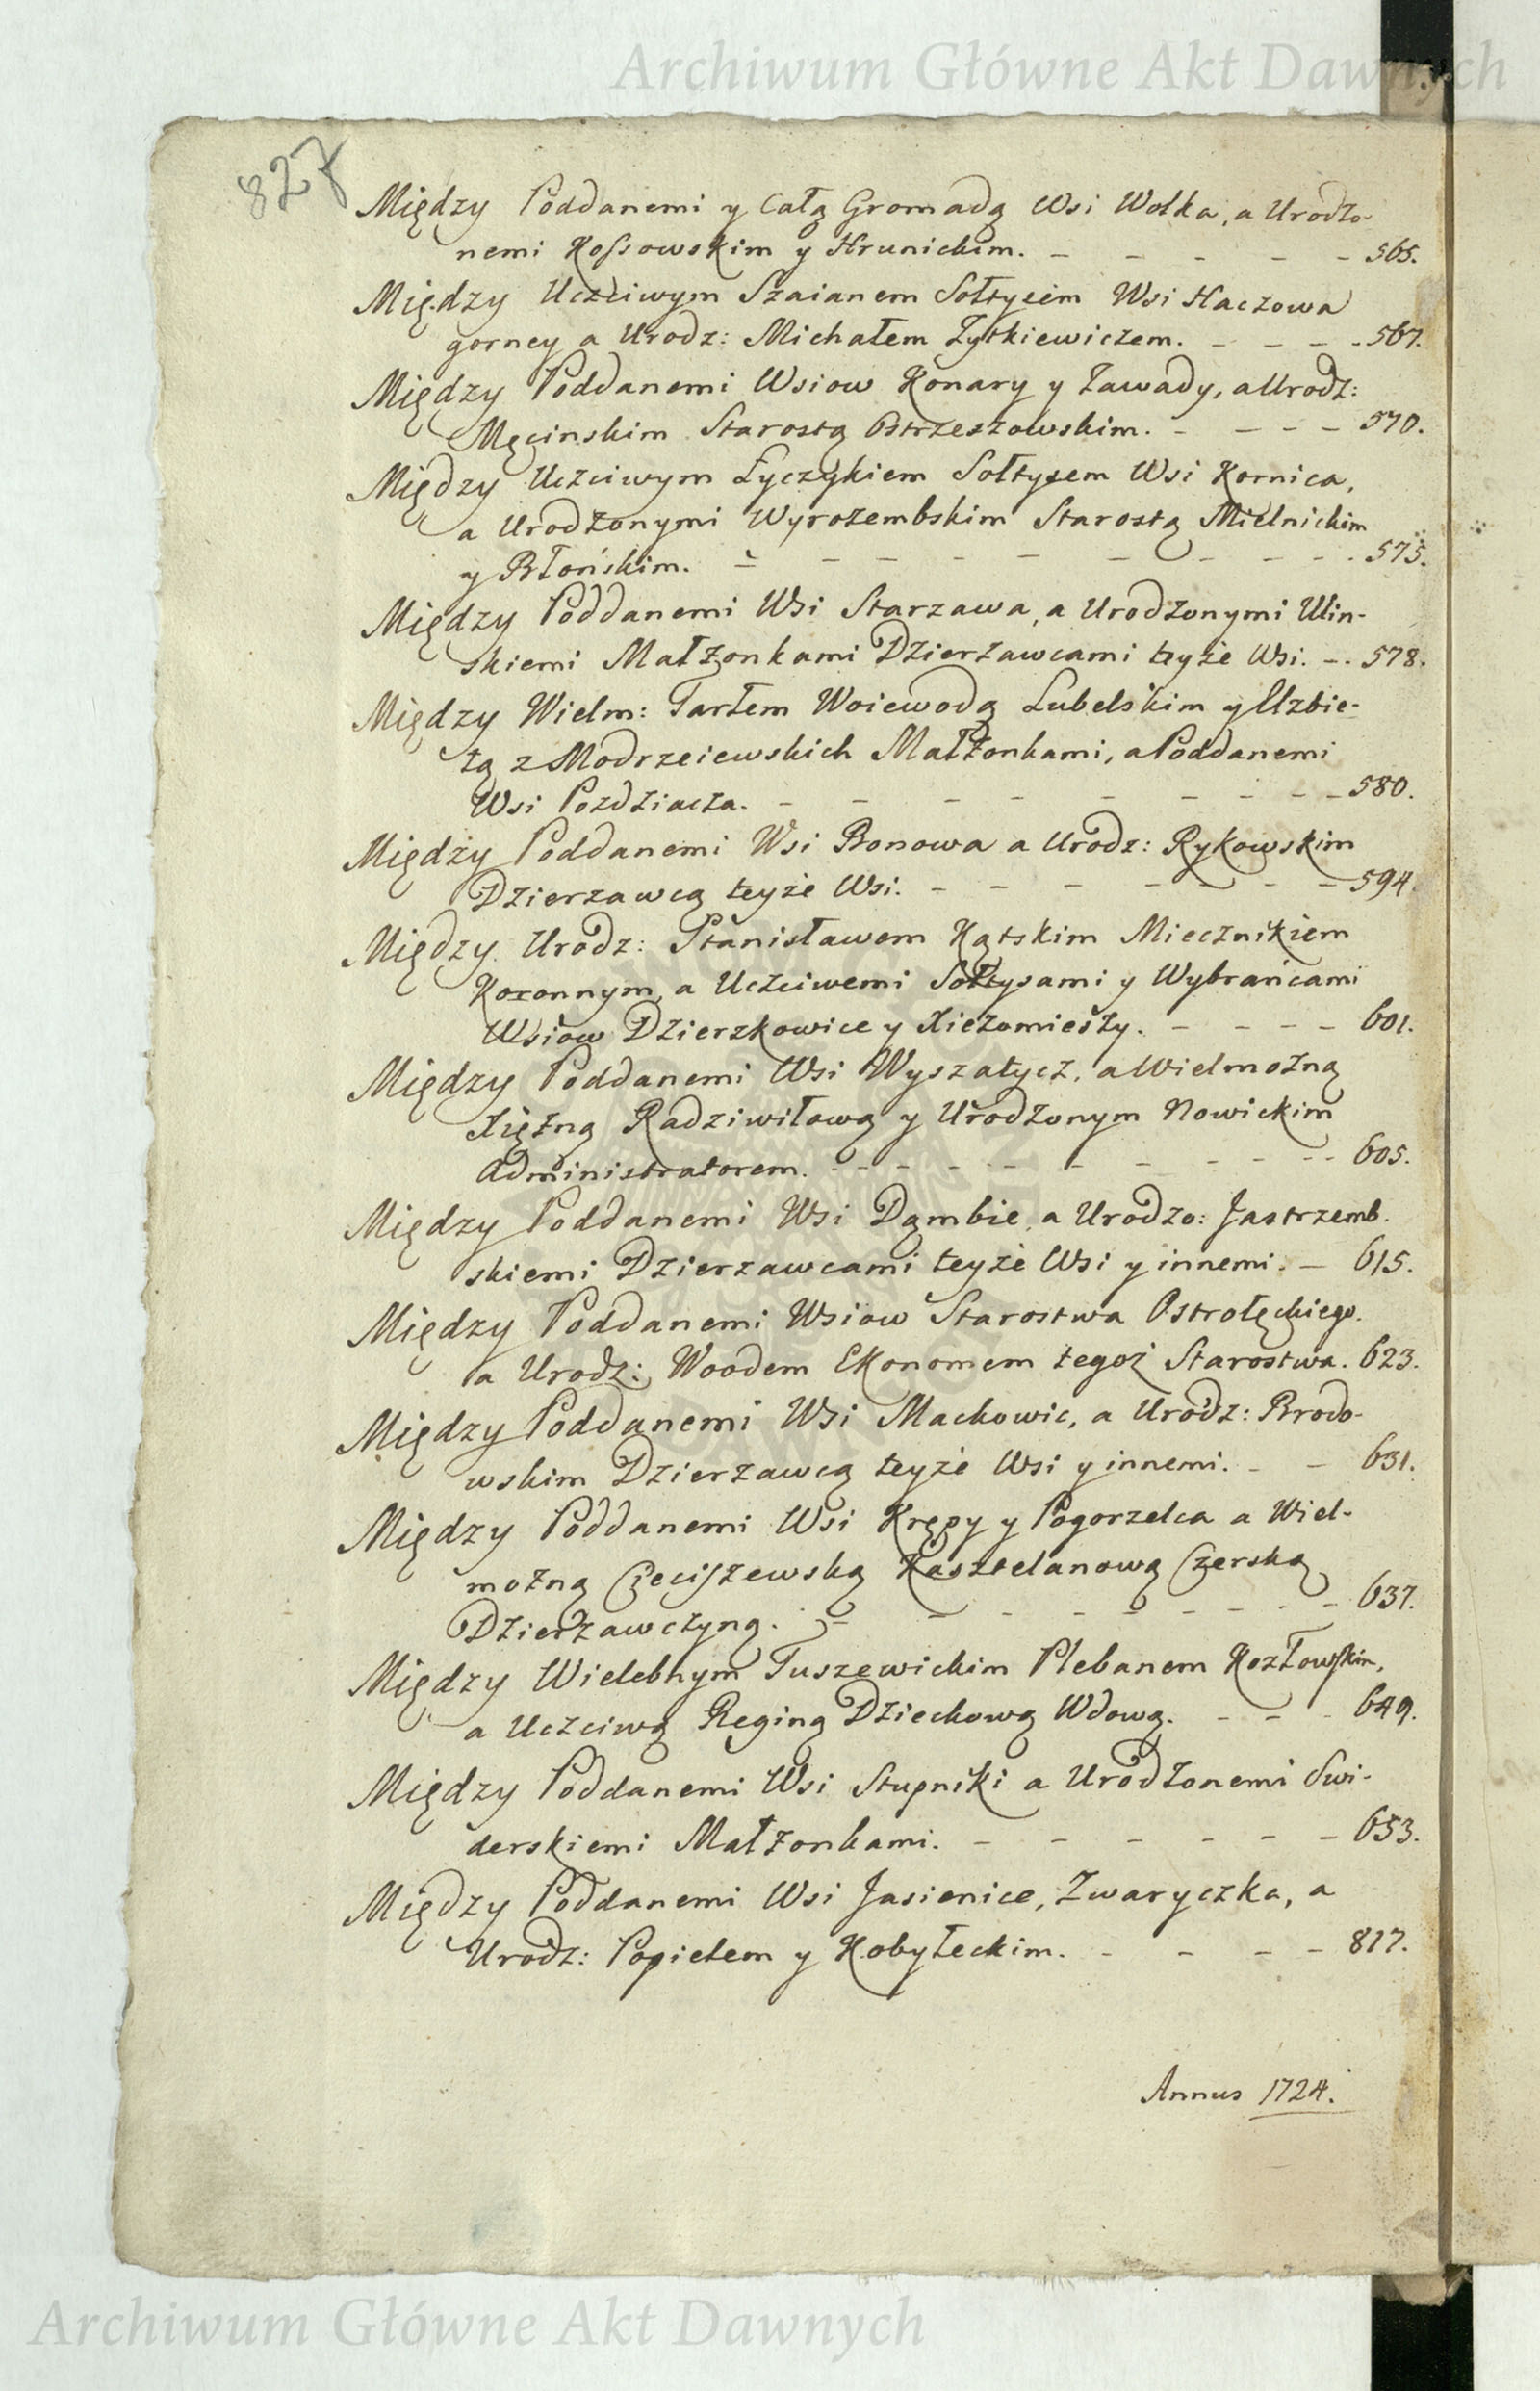 Archiwum Główne Akt Dawnych
827
Między Poddanemi y Całą Gromadą Wsi Wolka, a Urodzo-
nemi Kossowskim y Hrunickim. - - - - - 565.
Między Uczciwym Szaianem Sołtysem Wsi Haczowa
gorney a Urodz: Michałem Zytkiewiczem. - - - - 567.
Między Poddanemi Wsiow Konary y Zawady, a Urodz:
Męcinskim Starostą Ostrzeszowskim. - - - - 570.
Między Uczciwym Łyczykiem Sołtysem Wsi Kornica,
a Urodzonymi Wyrozembskim Starostą Mielnickim
y Błońskim. - - - - - - - - - - 575.
Między Poddanemi Wsi Starzawa, a Urodzonymi Ulin-
skiemi Małżonkami Dzierzawcami teyże Wsi. - . 578.
Między Wielm: Tarłem Woiewodą Lubelskim y Elzbie-
tą z Modrzeiewskich Małżonkami, a Poddanemi
Wsi Pozdziacza. - - - - - - - - - 580.
Między Poddanemi Wsi Bonowa a Urodz: Rykowskim
Dzierzawcą teyże Wsi. - - - - - - - 594.
Między Urodz: Stanisławem Kątskim Miecznikiem
Koronnym, a Uczciwemi Sołtysami y Wybrańcami
Wsiow Dzierzkowice y Xiezomieszy. - - - - 601.
Między Poddanemi Wsi Wyszatycz, a Wielmożną
Xiężną Radziwiłową y Urodzonym Nowickim
Administratorem. - - - - - - - - - - 605.
Między Poddanemi Wsi Dąmbie, a Urodzo: Jastrzemb-
skiemi Dzierzawcami teyże Wsi y innemi. - 615.
Między Poddanemi Wsiow Starostwa Ostrołęckiego.
a Urodz: Woodem Ekonomem tegoż Starostwa. 623.
Między Poddanemi Wsi Mackowic, a Urodz: Brodo-
wskim Dzierzawcą teyże Wsi y innemi. - - 631.
Między Poddanemi Wsi Krępy y Pogorzelca a Wiel-
możną Cieciszewską Kasztelanową Czerską
Dzierzawczyną. - - - - - - - - 637.
Między Wielebnym Tuszewickim Plebanem Kozłowskim,
a Uczciwą Reginą Dzieckową Wdową. - - - 649.
Między Poddanemi Wsi Stupniki a Urodzonemi Swi-
derskiemi Małżonkami. - - - - - - 653.
Między Poddanemi Wsi Jasienice, Zwaryczka, a
Urodz: Popielem y Kobyłeckim. - - - - 817.
Annus 1724.
Archiwum Główne Akt Dawnych